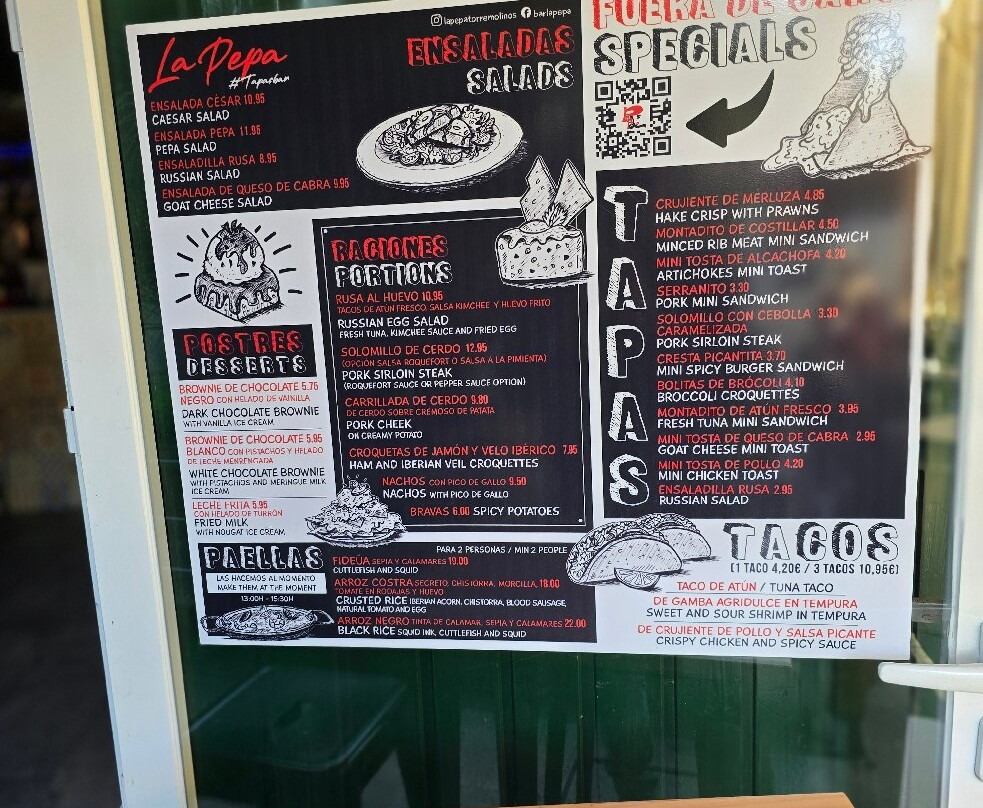 lapepatorremolinos barlapepa
La Pepa
#Tapasbar
ENSALADAS
SALADS
ENSALADA CÉSAR 10.95
CAESAR SALAD
ENSALADA PEPA 11.95
PEPA SALAD
ENSALADILLA RUSA 8.95
RUSSIAN SALAD
ENSALADA DE QUESO DE CABRA 9.95
GOAT CHEESE SALAD
POSTRES
DESSERTS
BROWNIE DE CHOCOLATE 5.75
NEGRO CON HELADO DE VAINILLA
DARK CHOCOLATE BROWNIE
WITH VANILLA ICE CREAM
BROWNIE DE CHOCOLATE 5.95
BLANCO CON PISTACHOS Y HELADO
DE LECHE MERENGADA
WHITE CHOCOLATE BROWNIE
WITH PISTACHIOS AND MERINGUE MILK
ICE CREAM
LECHE FRITA 5.95
CON HELADO DE TURRÓN
FRIED MILK
WITH NOUGAT ICE CREAM
RACIONES
PORTIONS
RUSA AL HUEVO 10.95
TACOS DE ATÚN FRESCO, SALSA KIMCHEE Y HUEVO FRITO
RUSSIAN EGG SALAD
FRESH TUNA, KIMCHEE SAUCE AND FRIED EGG
SOLOMILLO DE CERDO 12.95
(OPCIÓN SALSA ROQUEFORT O SALSA A LA PIMIENTA)
PORK SIRLOIN STEAK
(ROQUEFORT SAUCE OR PEPPER SAUCE OPTION)
CARRILLADA DE CERDO 9.80
DE CERDO SOBRE CREMOSO DE PATATA
PORK CHEEK
ON CREAMY POTATO
CROQUETAS DE JAMÓN Y VELO IBÉRICO 7.95
HAM AND IBERIAN VEIL CROQUETTES
NACHOS CON PICO DE GALLO 9.50
NACHOS WITH PICO DE GALLO
BRAVAS 6.00 SPICY POTATOES
PAELLAS
LAS HACEMOS AL MOMENTO
MAKE THEM AT THE MOMENT
13:00H - 15:30H
PARA 2 PERSONAS / MIN 2 PEOPLE
FIDEUÁ SEPIA Y CALAMARES 19.00
CUTTLEFISH AND SQUID
ARROZ COSTRA SECRETO, CHISTORRA, MORCILLA, 18.00
TOMATE EN RODAJAS Y HUEVO
CRUSTED RICE IBERIAN ACORN, CHISTORRA, BLOOD SAUSAGE,
NATURAL TOMATO AND EGG
ARROZ NEGRO TINTA DE CALAMAR, SEPIA Y CALAMARES 22.00
BLACK RICE SQUID INK, CUTTLEFISH AND SQUID
FUERA DE
SPECIALS
TAPAS
CRUJIENTE DE MERLUZA 4.85
HAKE CRISP WITH PRAWNS
MONTADITO DE COSTILLAR 4.50
MINCED RIB MEAT MINI SANDWICH
MINI TOSTA DE ALCACHOFA 4.20
ARTICHOKES MINI TOAST
SERRANITO 3.30
PORK MINI SANDWICH
SOLOMILLO CON CEBOLLA 3.30
CARAMELIZADA
PORK SIRLOIN STEAK
CRESTA PICANTITA 3.70
MINI SPICY BURGER SANDWICH
BOLITAS DE BRÓCOLI 4.10
BROCCOLI CROQUETTES
MONTADITO DE ATÚN FRESCO 3.95
FRESH TUNA MINI SANDWICH
MINI TOSTA DE QUESO DE CABRA 2.95
GOAT CHEESE MINI TOAST
MINI TOSTA DE POLLO 4.20
MINI CHICKEN TOAST
ENSALADILLA RUSA 2.95
RUSSIAN SALAD
TACOS
(1 TACO 4,20€ / 3 TACOS 10,95€)
TACO DE ATÚN / TUNA TACO
DE GAMBA AGRIDULCE EN TEMPURA
SWEET AND SOUR SHRIMP IN TEMPURA
DE CRUJIENTE DE POLLO Y SALSA PICANTE
CRISPY CHICKEN AND SPICY SAUCE